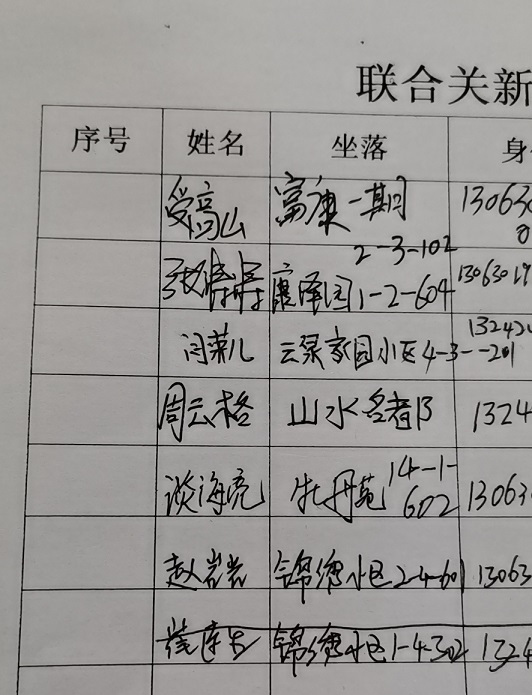 联合关新
序号 姓名 坐落 身
受高山 富康一期 130630
2-3-102
张 康泽园1-2-604 13063019
闫荣儿 云景家园小区4-3--201 13242
周云格 山水名都B 1324
谈海亮 牡丹苑 14-1-602 13063
赵岩岩 锦绣小区2-4-601 13063
锦绣小区1-4-302 1324